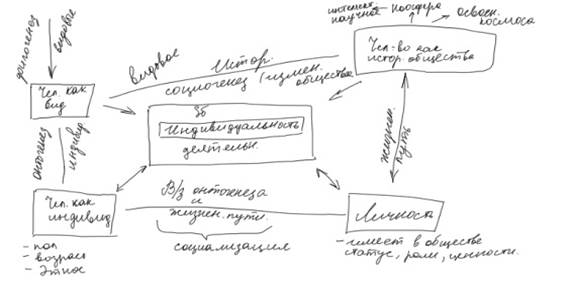 интеллек.
научная – ноосфера
освоен.
космоса
филогенез
видовое
Чел. как
вид
видовое
Истор.
социогенез / измен.
общества
Чел-во как
истор. общества
Индивидуальность
деятельн.
онтогенез
индивид
жизнен.
путь
Чел. как
индивид
В/з онтогенеза
и
жизнен. пути.
социализация
Личность
- пол
- возраст
- Этнос
- имеет в обществе
статус, роли, ценности.